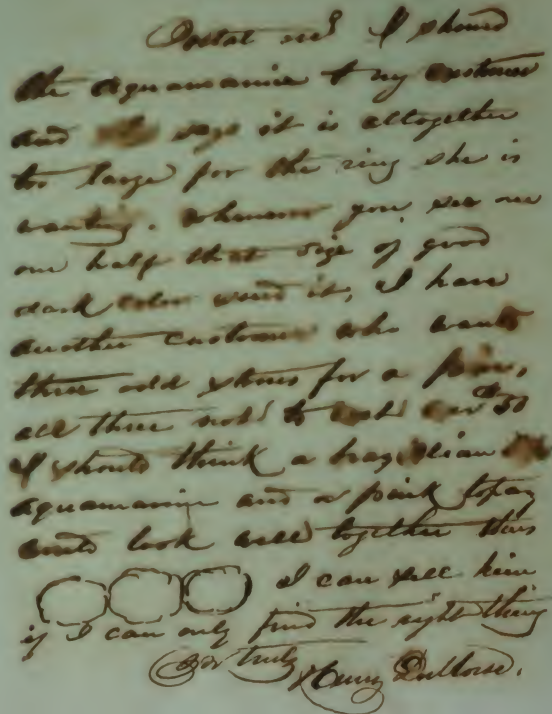 Postal recd I showed
the aquamarine to my customer
and she says it is altogether
too large for the ring she is
wanting. Whenever you see one
one half that size of good
dark color send it, I have
another customer who wants
three odd stones for a
all three not to cost over $50
I should think a brazilian
aquamarine and a pink topaz
would look well together thus
I can sell him
if I can only find the right thing
truly Henry